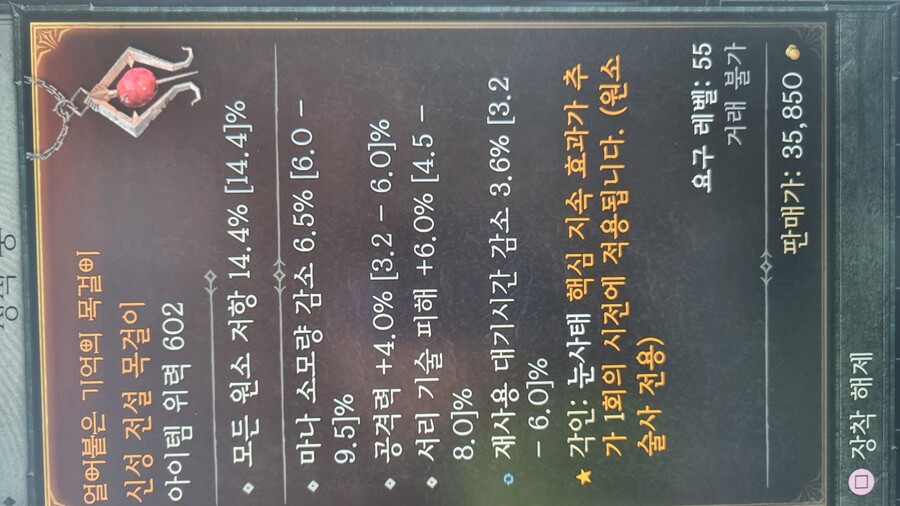 장착 중
얼어붙은 기억의 목걸이
신성 전설 목걸이
아이템 위력 602
모든 원소 저항 14.4% [14.4]%
마나 소모량 감소 6.5% [6.0 –
9.5]%
공격력 +4.0% [3.2 – 6.0]%
서리 기술 피해 +6.0% [4.5 –
8.0]%
재사용 대기시간 감소 3.6% [3.2
– 6.0]%
각인: 눈사태 핵심 지속 효과가 추
가 1회의 시전에 적용됩니다. (원소
술사 전용)
요구 레벨: 55
거래 불가
판매가: 35,850
장착 해제